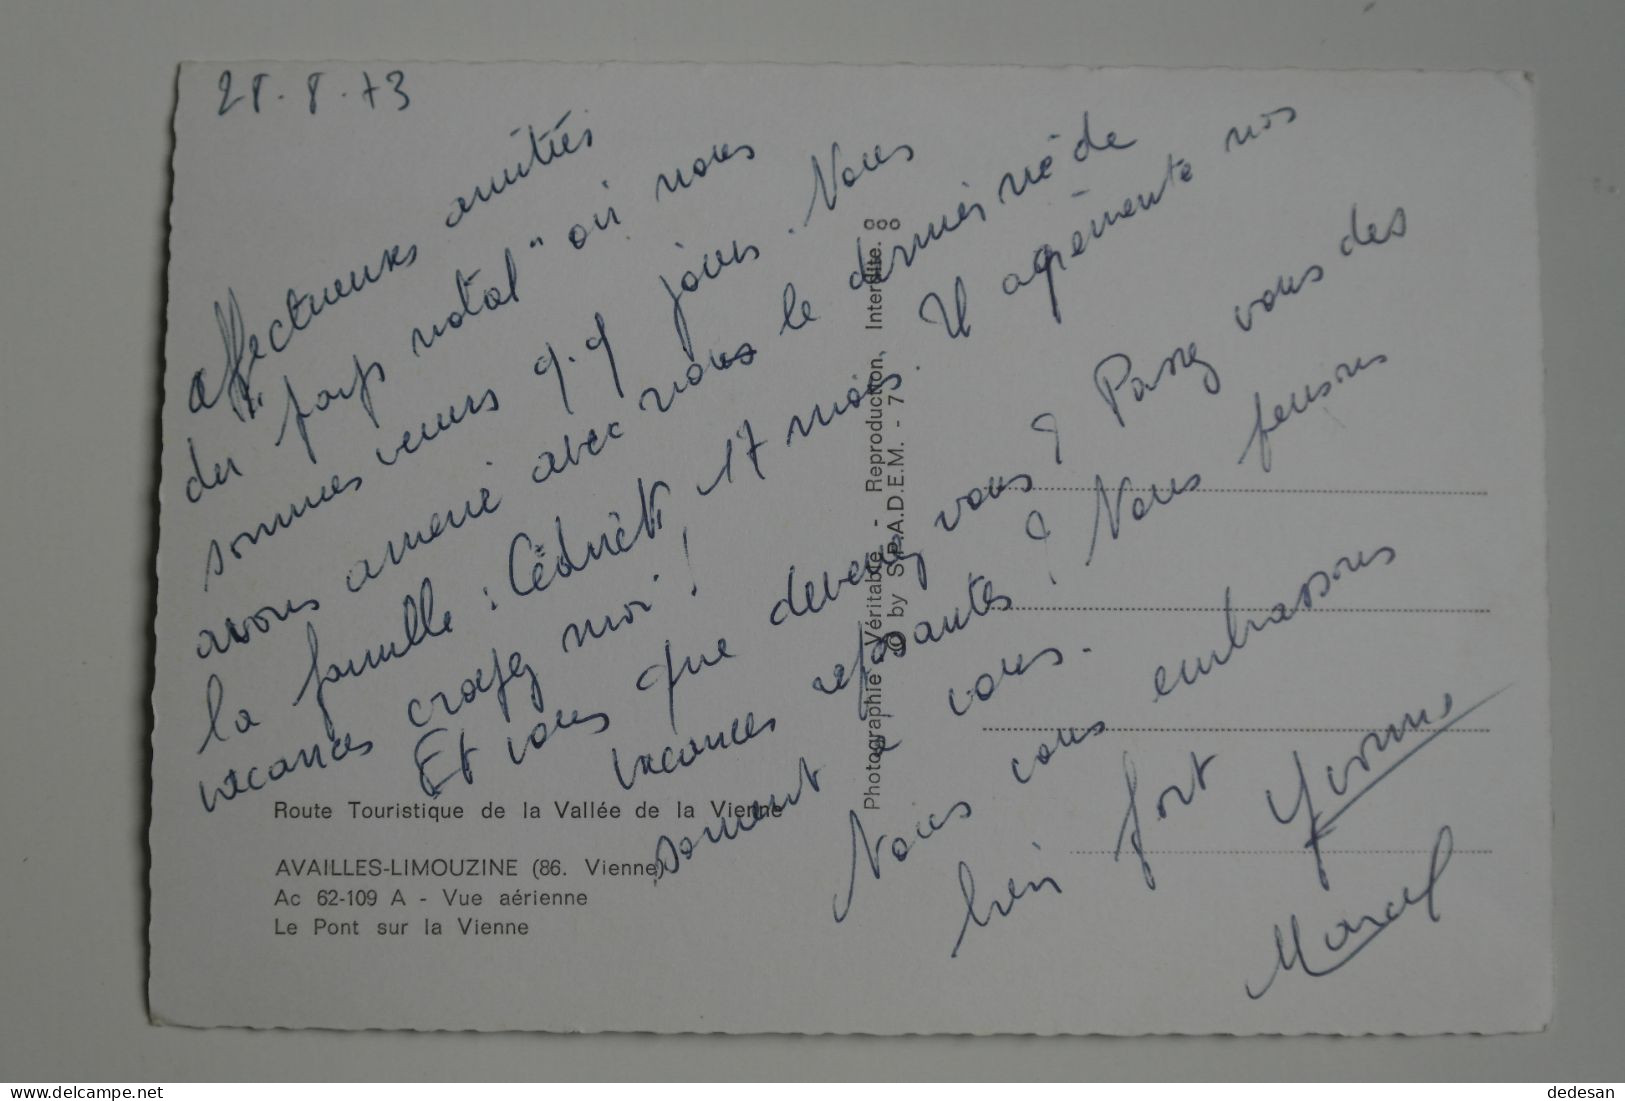 28.8.73
Affectueuses amitiés
du "pays natal" où nous
sommes venus q.q jours. Nous
avons amené avec nous le dernier né de
la famille : Cédrick, 17 mois. Il agrémente nos
vacances croyez moi !
Et vous que devenez vous ? Passez vous des
vacances reposantes ? Nous pensons
souvent à vous.
Nous vous embrassons
bien fort
Yvonne
Marcel
Route Touristique de la Vallée de la Vienne
AVAILLES-LIMOUZINE (86. Vienne)
Ac 62-109 A - Vue aérienne
Le Pont sur la Vienne
Photographie Véritable - Reproduction Interdite.
© by S.P.A.D.E.M. - 7
delcampe.net
dedesan